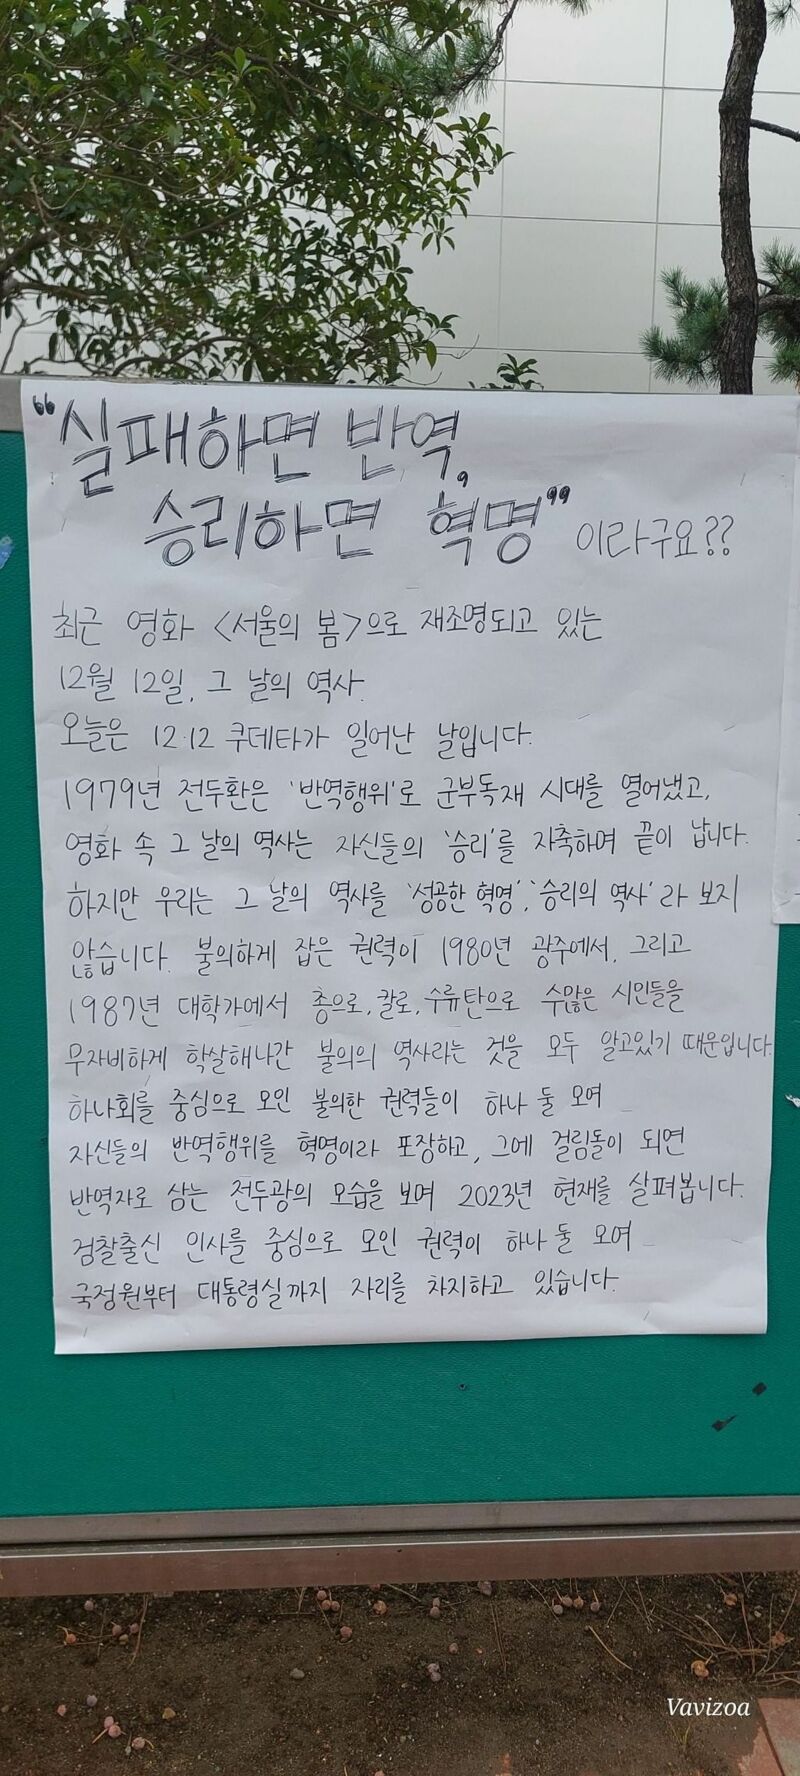 "실패하면 반역,
승리하면 혁명" 이라구요??
최근 영화 <서울의 봄>으로 재조명되고 있는
12월 12일, 그 날의 역사.
오늘은 12·12 쿠데타가 일어난 날입니다.
1979년 전두환은 '반역행위'로 군부독재 시대를 열어냈고,
영화 속 그 날의 역사는 자신들의 '승리'를 자축하며 끝이 납니다.
하지만 우리는 그 날의 역사를 '성공한 혁명', '승리의 역사'라 보지
않습니다. 불의하게 잡은 권력이 1980년 광주에서, 그리고
1987년 대학가에서 총으로, 칼로, 수류탄으로 수많은 시민들을
무자비하게 학살해나간 불의의 역사라는 것을 모두 알고있기 때문입니다.
하나회를 중심으로 모인 불의한 권력들이 하나 둘 모여
자신들의 반역행위를 혁명이라 포장하고, 그에 걸림돌이 되면
반역자로 삼는 전두광의 모습을 보며 2023년 현재를 살펴봅니다.
검찰출신 인사를 중심으로 모인 권력이 하나 둘 모여
국정원부터 대통령실까지 자리를 차지하고 있습니다.
Vavizoa